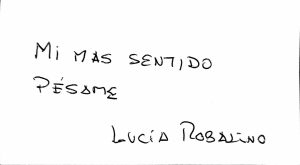 MI MAS SENTIDO
PÉSAME
LUCÍA ROBALINO